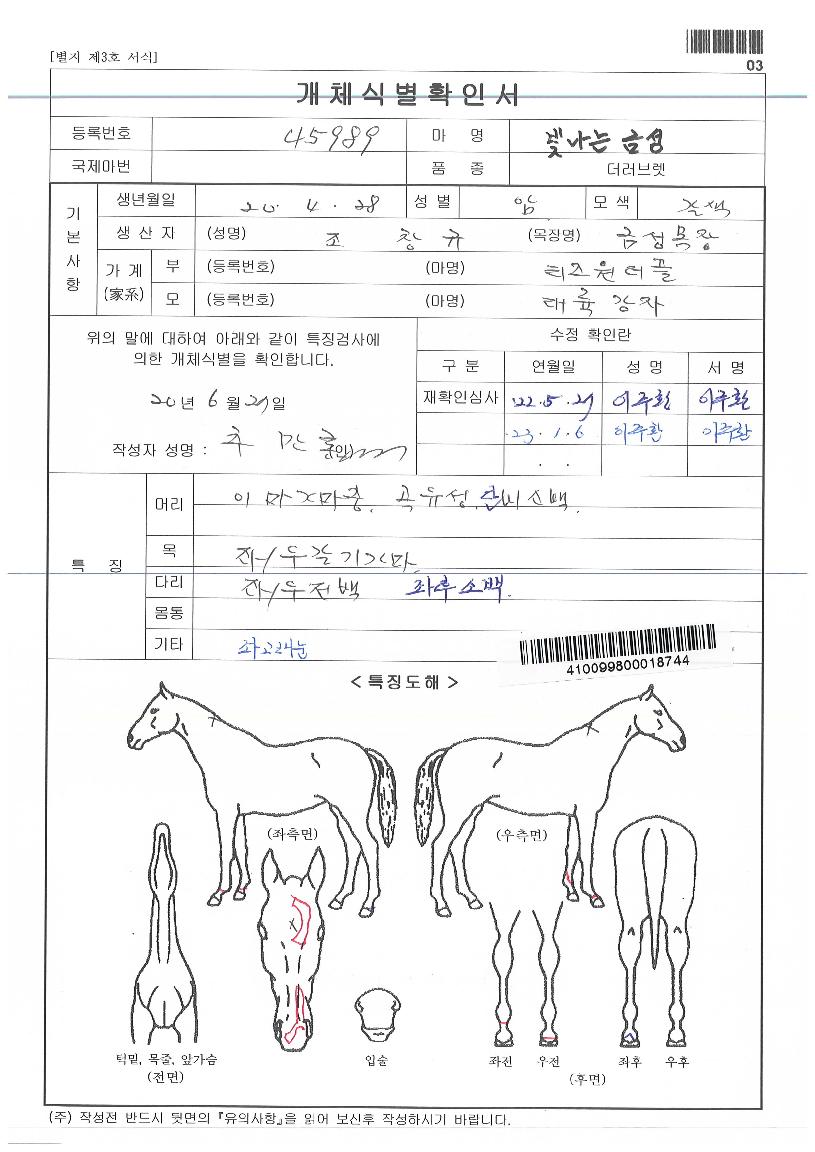 [별지 제3호 서식]
03
개체식별확인서
등록번호 45989 마 명 빛나는 금성
국제마번 품 종 더러브렛
기본사항
생년월일 20. 4. 28 성별 암 모색 갈색
생 산 자 (성명) 조 창 규 (목장명) 금성목장
가 계 (家系) 부 (등록번호) (마명) 티즈원더풀
모 (등록번호) (마명) 대륙강자
위의 말에 대하여 아래와 같이 특징검사에
의한 개체식별을 확인합니다.
20년 6월 29일
작성자 성명 :
수정 확인란
구 분 연월일 성 명 서 명
재확인심사 '22.5.29 이주환 이주환
'23.1.6 이주환 이주환
. .
특 징
머리
목
다리 좌/우전백 좌후소백.
몸통
기타 좌고리눈
410099800018744
< 특징도해 >
(좌측면) (우측면)
턱밑, 목줄, 앞가슴
(전면)
입술
좌전 우전 좌후 우후
(후면)
(주) 작성전 반드시 뒷면의 『유의사항』을 읽어 보신후 작성하시기 바랍니다.